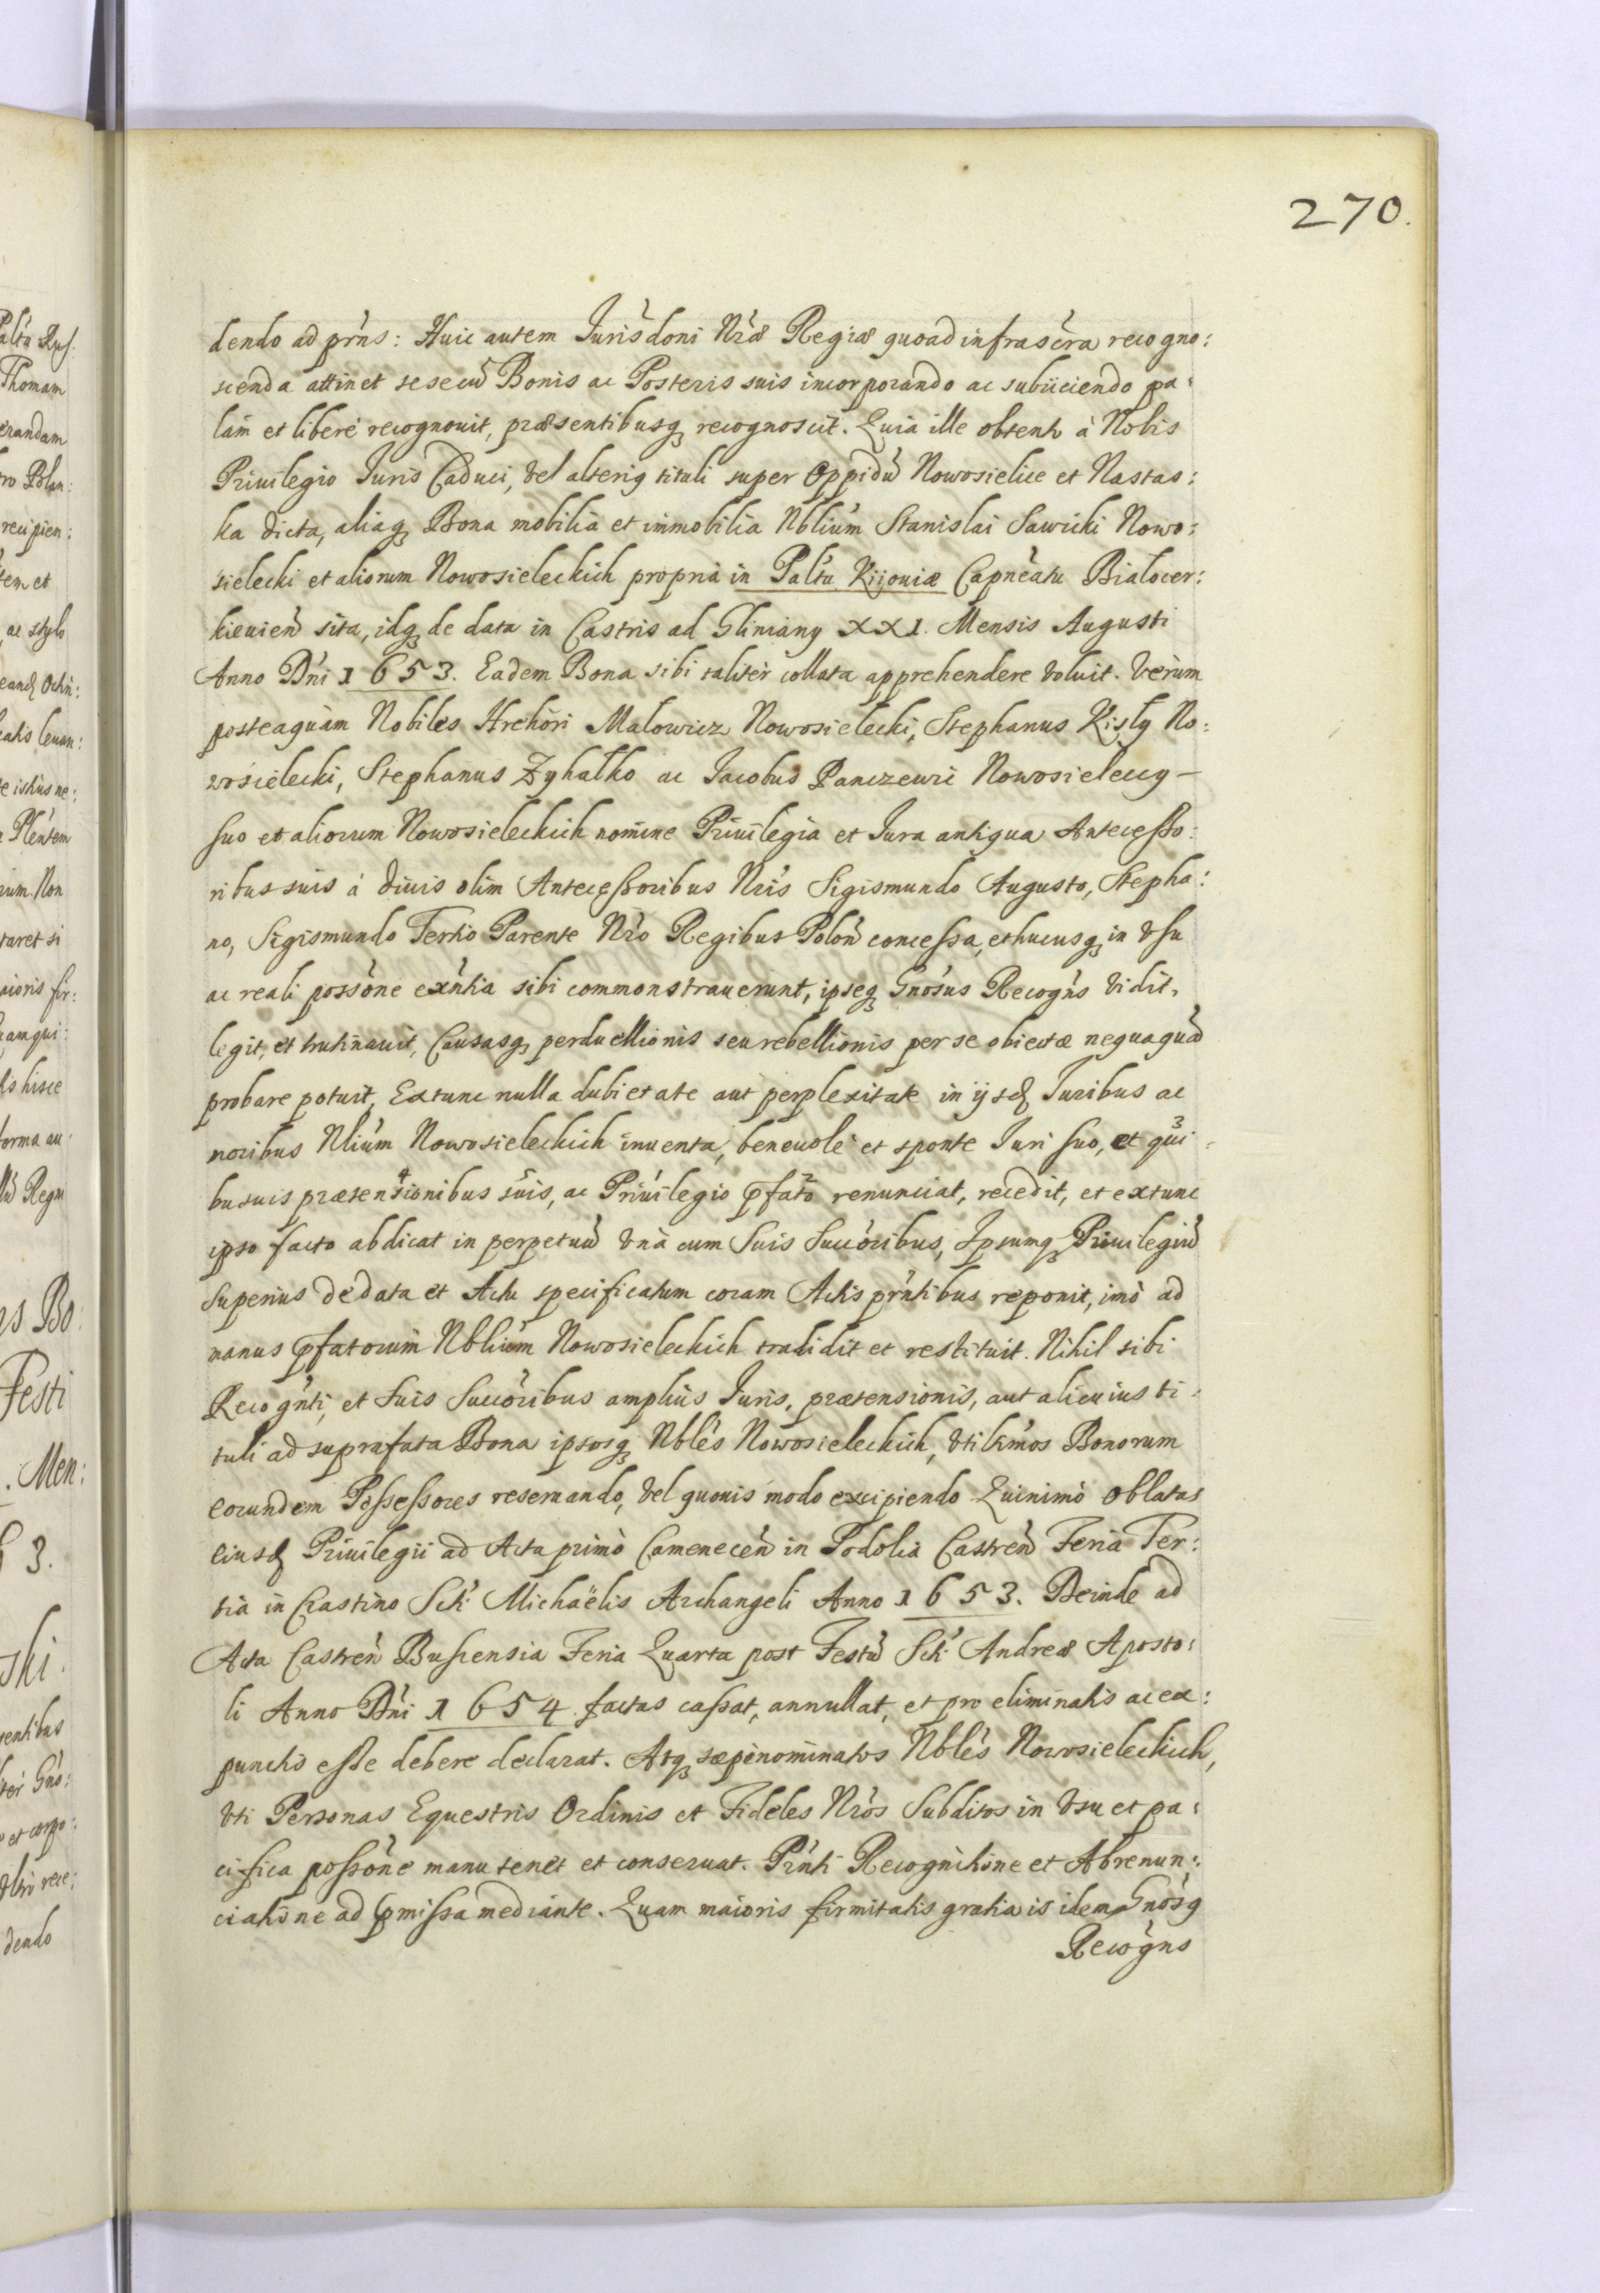 270.
dendo ad prńs: Huic autem Jurisdoni Nrae Regiae quoad infrascra recogno:
scenda attinet sese cũ Bonis ac Posteris suis incorporando ac subiiciendo pa:
lam et liberè recognouit, praesentibusq recognoscit. Quia ille obtento à Nobis
Priuilegio Juris Caduci, vel alterig tituli super Oppidũ Nowosielice et Nastas:
ka dicta, aliaq Bona mobilia et immobilia Nblium Stanislai Sawicki Nowo:
sielecki et aliorum Nowosieleckich propria in Paltu Kijouiae Capneatu Bialocer:
kieuien sita, idq de data in Castris ad Gliniany XXI. Mensis Augusti
Anno Dni 1653. Eadem Bona sibi taliter collata apprehendere voluit. Verùm
posteaquàm Nobiles Hrehori Malowicz Nowosielecki, Stephanus Kisly No:
wosielecki, Stephanus Zyhałko ac Jacobus Panczewic Nowosielecy –
suo et aliorum Nowosieleckich nomine Priuilegia et Jura antiqua Antecesso:
ribus suis à diuis olim Antecessoribus Nris Sigismundo Augusto, Stepha:
no, Sigismundo Tertio Parente Nro Regibus Polon concessa, et hucusq in vsu
ac reali possone exntia sibi commonstrauerunt, ipseq Gnosus Recogns vidit,
legit, et trutinauit, Causasq perduellionis seu rebellionis per se obiectae nequaquã
probare potuit, Extunc nulla dubietate aut perplexitate in ijsd Juribus ac
noribus Nlium Nowosieleckich inuenta, beneuolè et sponte Juri suo, et qui
busuis praetensionibus suis, ac Priuilegio pfato renunciat, recedit, et extunc
ipso facto abdicat in perpetuũ vnà cum Suis Succoribus, Ipsumq Priuilegiũ
superius de data et Actu specificatum coram Actis prntibus reponit, imò ad
manus pfatorum Nblium Nowosieleckich tradidit et restituit. Nihil sibi
Recognti, et Suis Succoribus amplius Juris, praetensionis, aut alicuius ti:
tuli ad suprafata Bona ipsosq Nbles Nowosieleckich, vti ltmos Bonorum
eorundem Possessores reseruando, vel quouis modo excipiendo Quinimò Oblatas
eiusd Priuilegii ad Acta primò Camenecen in Podolia Castren Feria Ter:
tia in Crastino Scti Michaëlis Archangeli Anno 1653. Deinde ad
Acta Castren Buscensia Feria Quarta post Festũ Scti Andreae Aposto:
li Anno Dni 1654 factas cassat, annullat, et pro eliminatis ac ex:
punctis esse debere declarat. Atq saepènominatos Nbles Nowosieleckich,
vti Personas Equestris Ordinis et Fideles Nros Subditos in vsu et pa:
cifica possone manutenet et conseruat. Prnti Recognitione et Abrenun:
ciatione ad pmissa mediante. Quam maioris firmitatis gratia is idem Gnosq
Recogns